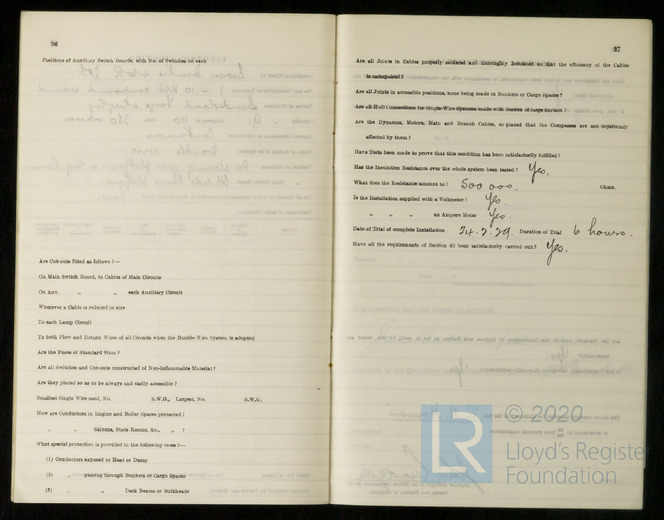 36
Positions of Auxiliary Switch Boards, with No. of Switches on each
Are Cut-outs fitted as follows?—
On Main Switch Board, to Cables of Main Circuits
On Aux. „ „ each Auxiliary Circuit
Wherever a Cable is reduced in size
To each Lamp Circuit
To both Flow and Return Wires of all Circuits when the Double-Wire System is adopted
Are the Fuses of Standard Sizes?
Are all Switches and Cut-outs constructed of Non-inflammable Material?
Are they placed so as to be always and easily accessible?
Smallest Single Wire used, No. S.W.G., Largest, No. S.W.G.
How are Conductors in Engine and Boiler Spaces protected?
„ „ Saloons, State Rooms, &c., „ ?
What special protection is provided in the following cases?—
(1) Conductors exposed to Heat or Damp
(2) „ passing through Bunkers or Cargo Spaces
(3) „ „ Deck Beams or Bulkheads
37
Are all Joints in Cables properly soldered and thoroughly insulated so that the efficiency of the Cables
is unimpaired?
Are all Joints in accessible positions, none being made in Bunkers or Cargo Spaces?
Are all Hull Connections for Single-Wire Systems made with Screws of large surface?
Are the Dynamos, Motors, Main and Branch Cables, so placed that the Compasses are not injuriously
affected by them?
Have Tests been made to prove that this condition has been satisfactorily fulfilled?
Has the Insulation Resistance over the whole system been tested? Yes.
What does the Resistance amount to? 500 000. Ohms.
Is the Installation supplied with a Voltmeter? Yes.
„ „ „ an Ampere Meter Yes.
Date of Trial of complete Installation 24.2.29. Duration of Trial 6 hours.
Have all the requirements of Section 42 been satisfactorily carried out? Yes.
© 2020
LR
Lloyd's Register
Foundation